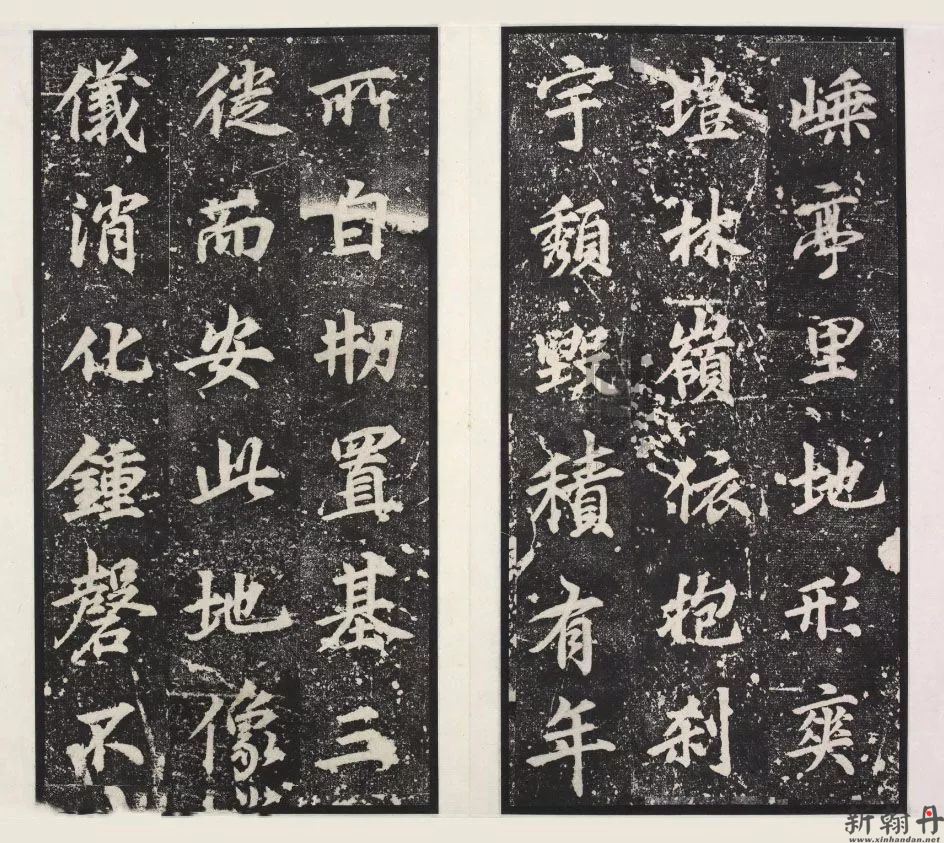 嵊亭里地形爽
塏林嶺依抱刹
宇頹毀積有年
所自刱置基三
徙而安此地像
儀消化鍾磬不
新翰丹
www.xinhandan.net